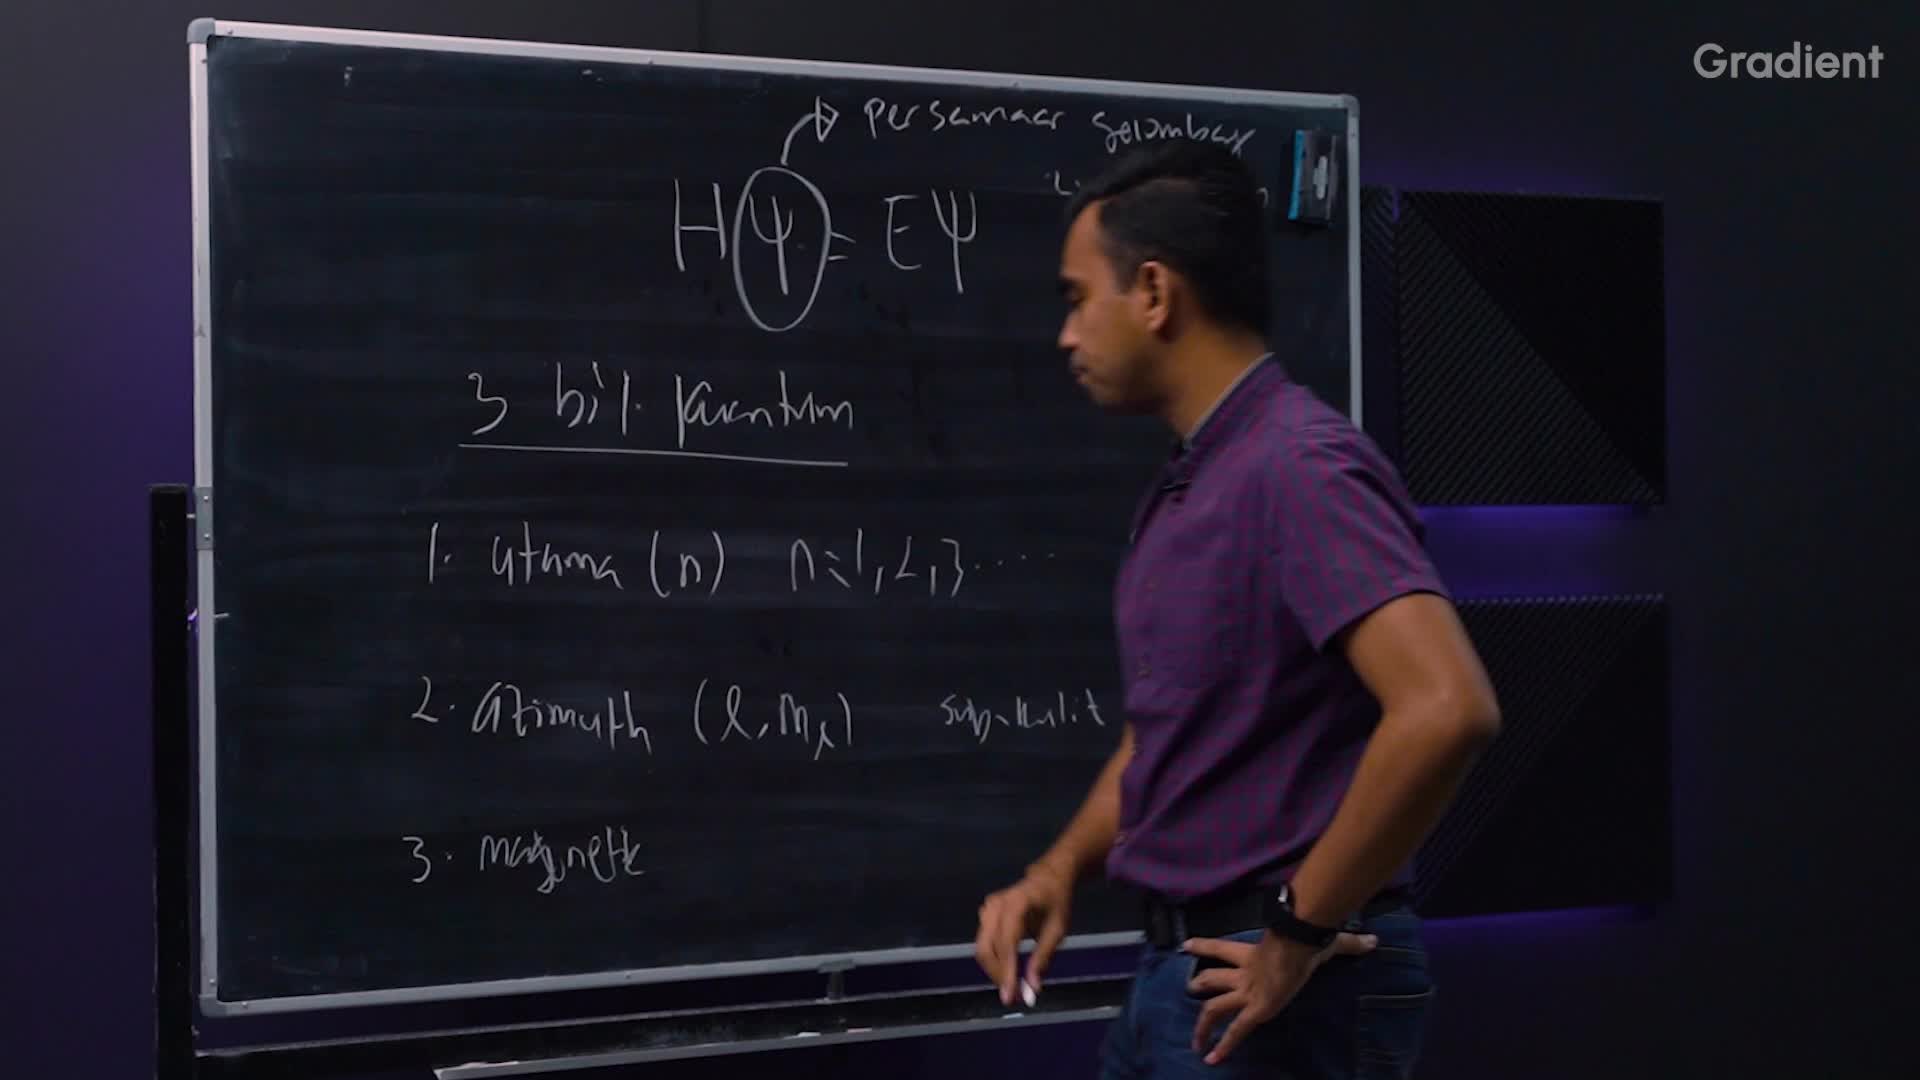 Gradient
persamaan gelombang
HΨ = EΨ
3 bil. kuantum
1. utama (n) n=1,2,3.....
2. azimuth (l, ml) subkulit
3. magnetik